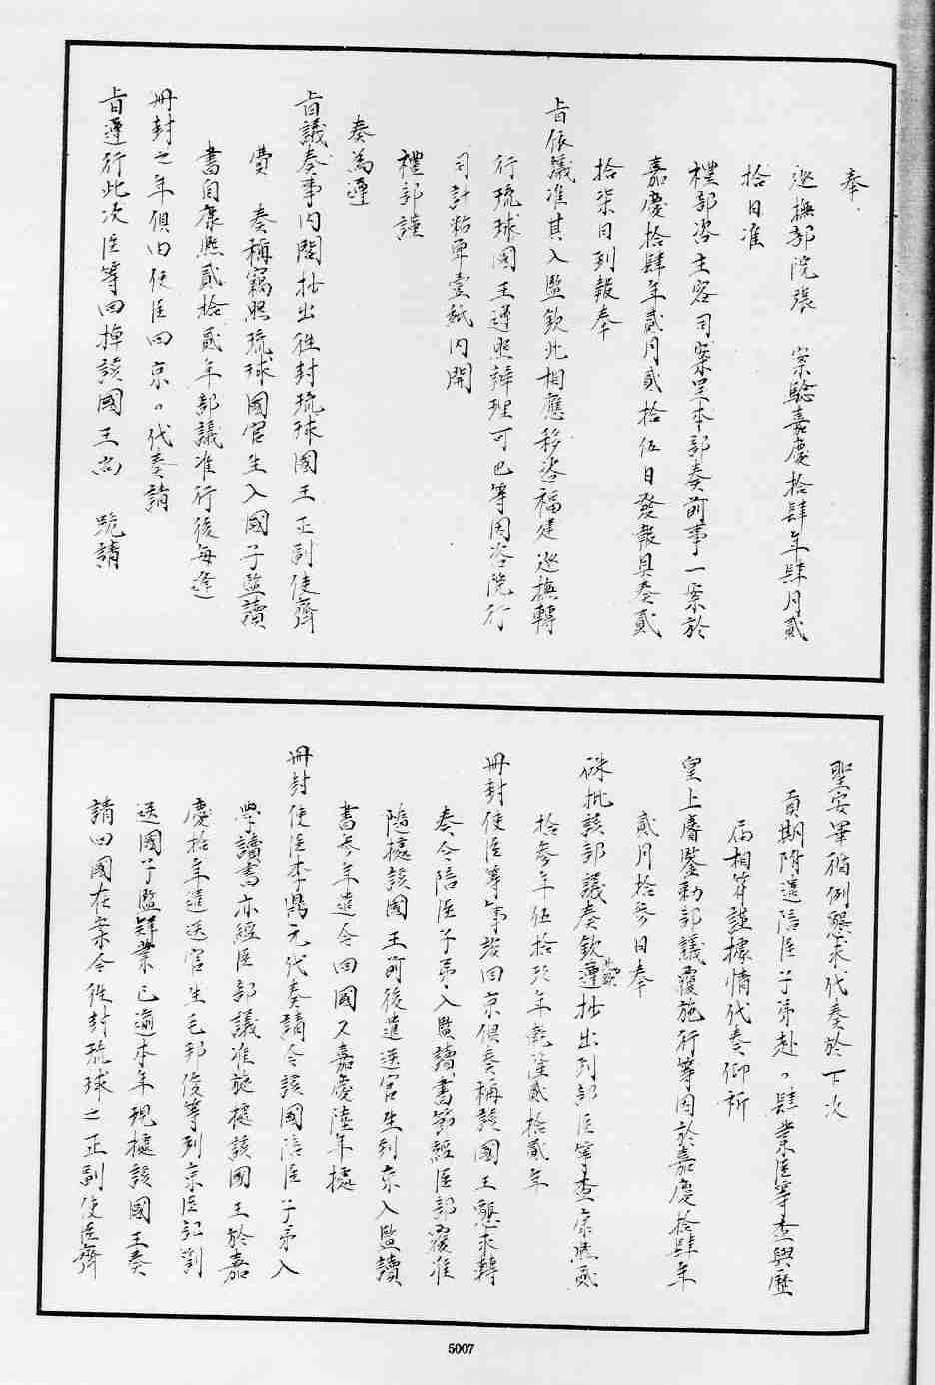 奉
巡撫部院張 案驗嘉慶拾肆年肆月貳
拾日准
禮部咨主客司案呈本部奏前事一案於
嘉慶拾肆年貳月貳拾伍日發報具奏貳
拾柒日到報奉
旨依議准其入監欽此相應移咨福建巡撫轉
行琉球國王遵照辦理可也等因咨院行
司計粘單壹紙內開
禮部謹
奏為遵
旨議奏事內閣抄出徃封琉球國王正副使齊
費 奏稱竊照琉球國官生入國子監讀
書自康熙貳拾貳年部議准行後每逢
冊封之年俱由使臣回京。代奏請
旨遵行此次臣等回掉該國王尚 跪請
聖安畢循例懇求代奏於下次
貢期附遣陪臣子弟赴。肄業臣等查與歷
屆相符謹據情代奏仰祈
皇上睿鑒勅部議覆施行等因於嘉慶拾肆年
貳月拾參日奉
硃批該部議奏欽遵抄出到部臣等查康熙貳
拾參年伍拾玖年乾隆貳拾貳年
冊封使臣等事竣回京俱奏稱該國王懇求轉
奏令陪臣子弟入監讀書節經臣部覆准
隨據該國王前後遣送官生到京入監讀
書參年遣令回國又嘉慶陸年據
冊封使臣李鼎元代奏請令該國陪臣子弟入
學讀書亦經臣部議准旋據該國王於嘉
慶拾年遣送官生毛邦俊等到京臣部劄
送國子監肄業已逾本年現據該國王奏
請回國在案今徃封琉球之正副使臣齊
5007